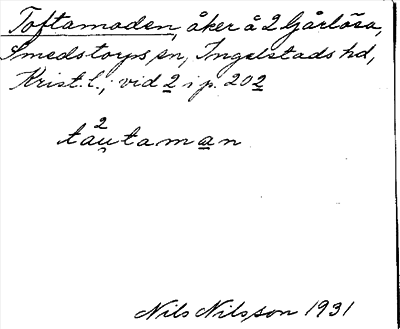 Toftamaden, åker å 2 Gårlösa,
Smedstorps sn, Ingelstads hd,
Krist. l.; vid 2 i p. 202
tåutaman
2
Nils Nilsson 1931